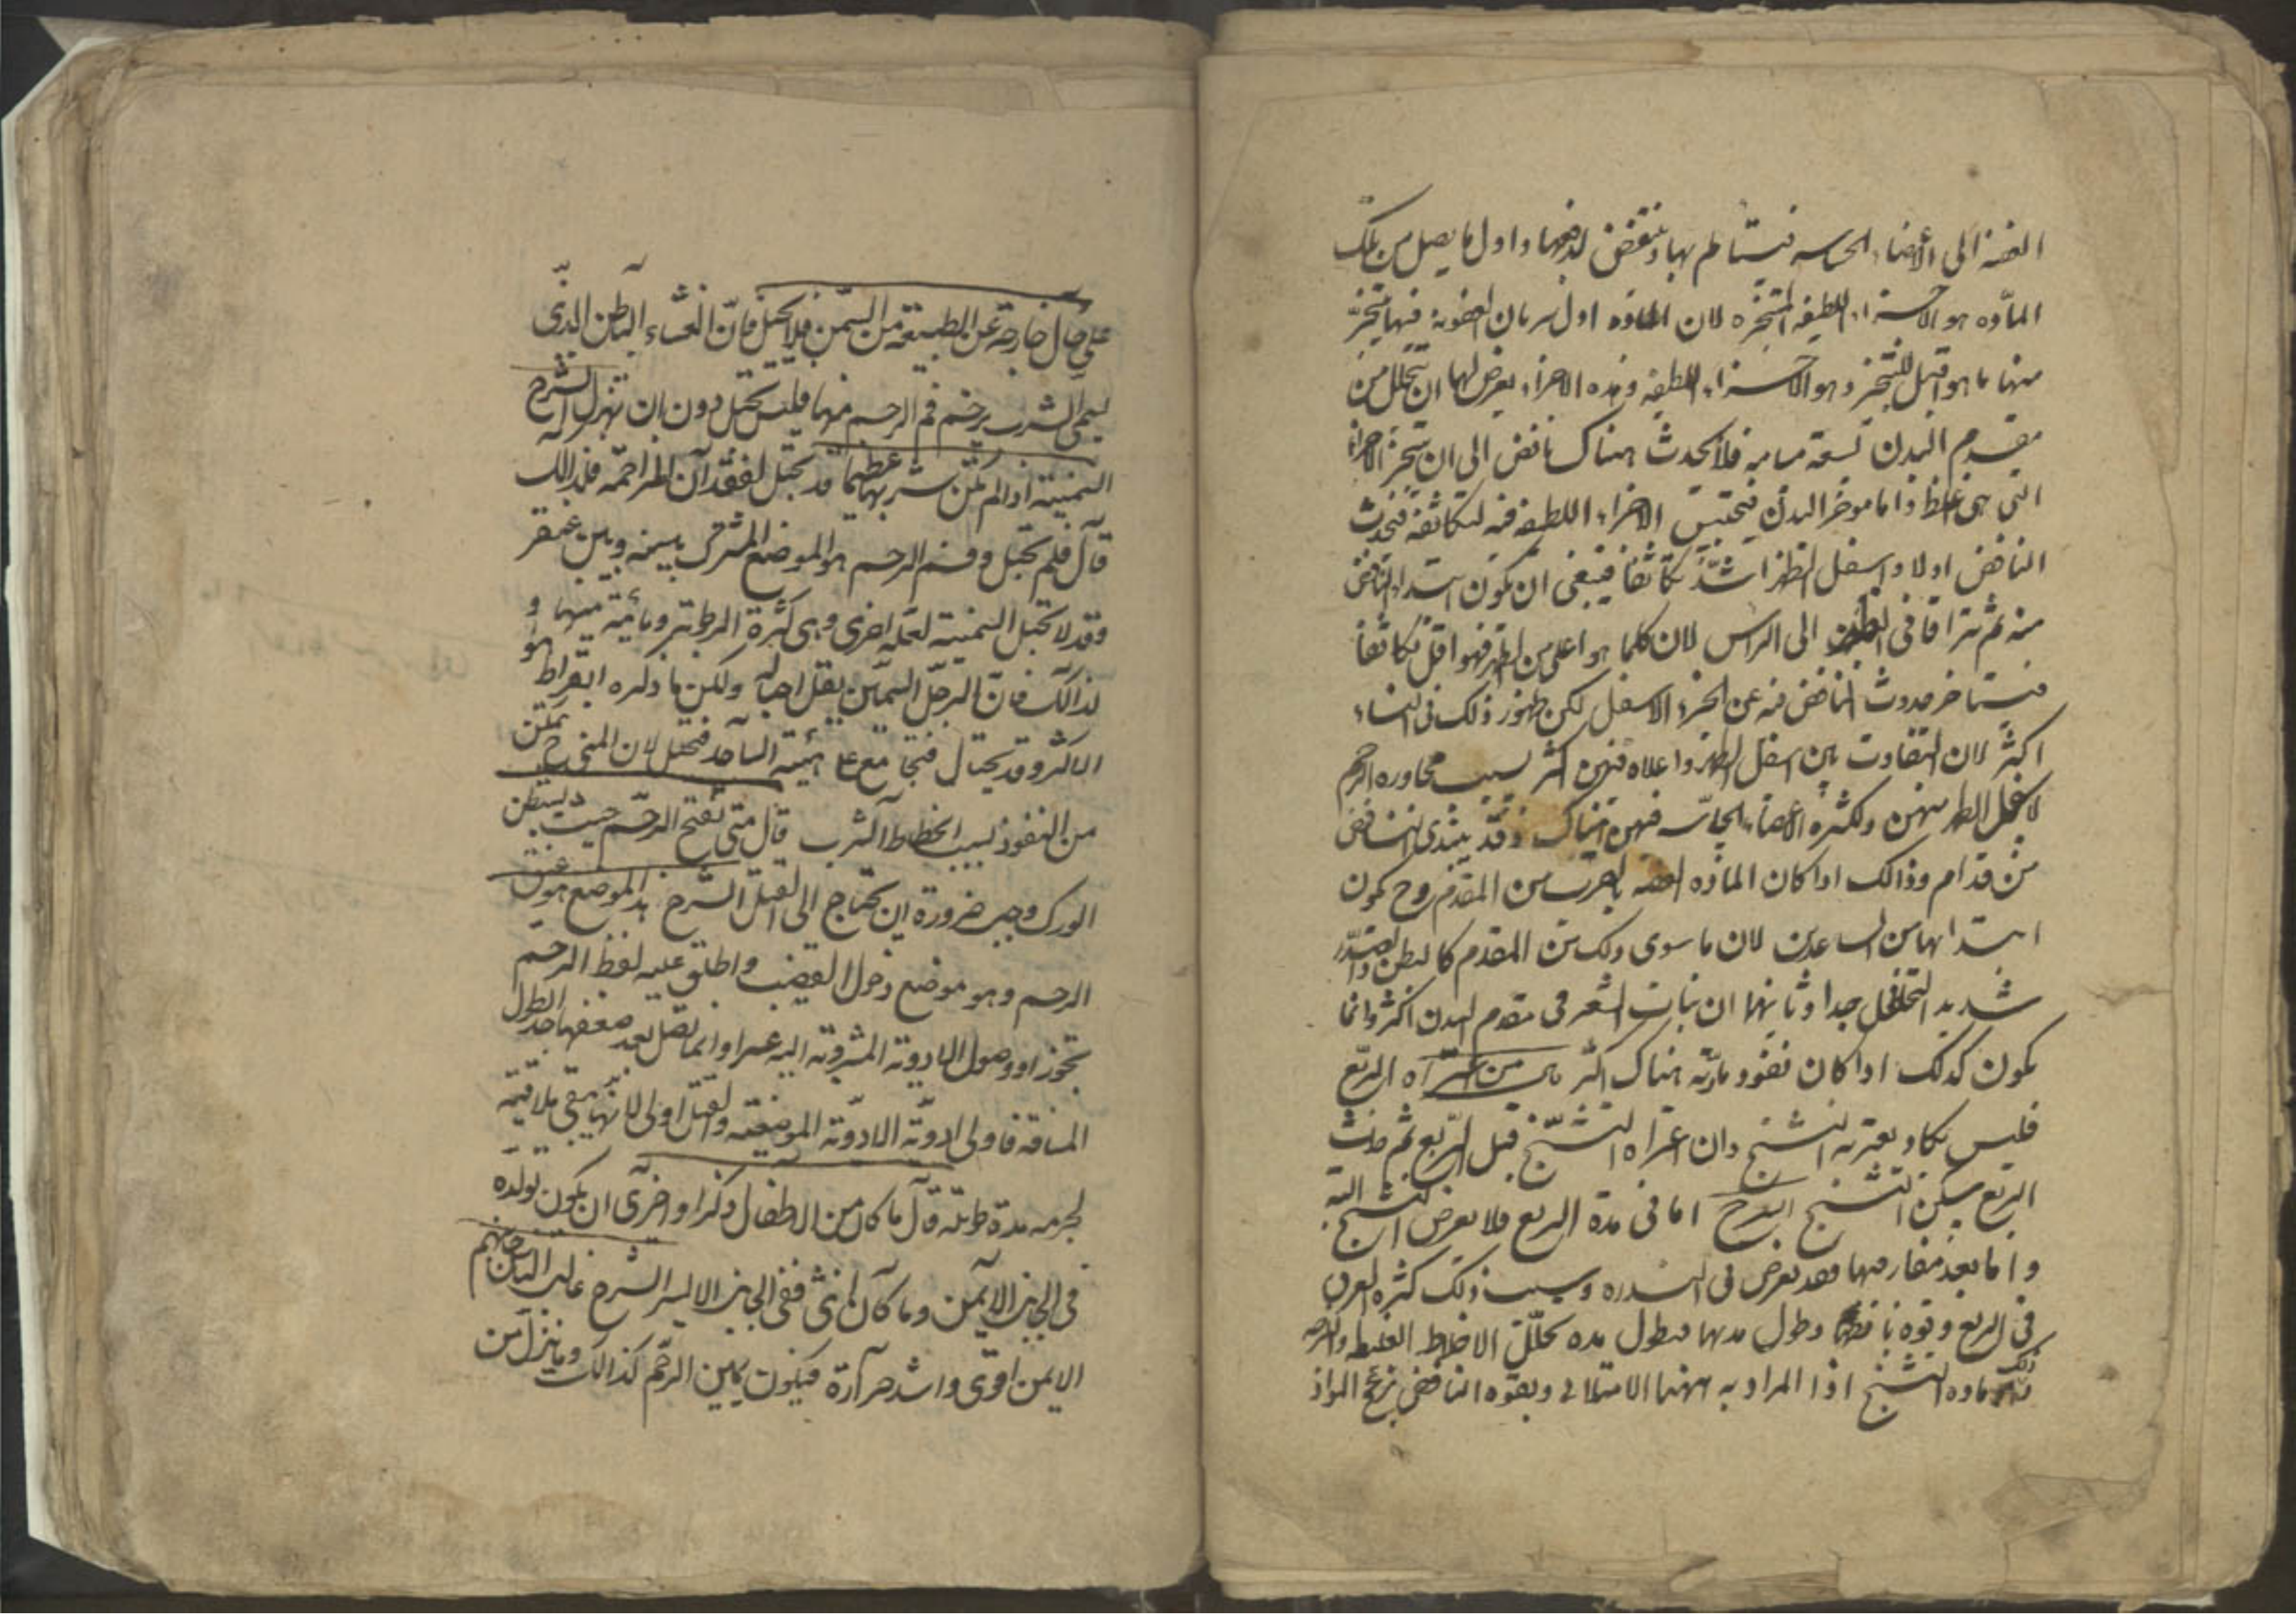 العفنه الى الأعضاء الحساسه فيتا لم بها وينتفض لدفعها واول ما يصل من تلك
المادّه هو الاجزاء اللطيفه المتبخره لان الماده اول سريان العفونة فيها يتبخر
منها ما هو اقبل للتبخر وهو الاجزاء اللطيفه وهذه الاجزاء يعرض لها ان تتحلل من
مقدم البدن لسعة مسامه فلا يحدث هناك نافض الى ان يتبخر الاجزاء
التى هى اغلظ واما موخر البدن فيحتبس الاجزاء اللطيفه فيه لتكاثفه فيحدث
النافض اولا واسفل الظهر اشدّ تكاثفا فينبغى ان يكون ابتداء النافض
منه ثم يتراقا فى الى الراس لان كلما هو اعلى من الظهر فهو اقل تكاثفا
فيتاخر حدوث النافض فيه عن الجزء الاسفل لكن ظهور ذلك فى النساء
اكثر لان التفاوت بين اسفل الظهر واعلاه فيهن اكثر بسبب مجاوره الرحم
لاسفل الظهر منهن ولكثره الأعضاء الحاسّه فيهن هناك وقد يبتدى النافض
من قدام وذالك اذا كان المادّه العفنه بالقرب من المقدم وح يكون
ابتدائها من الساعدين لان ما سوى ذلك من المقدم كالبطن والصدر
شديد التخلخل جدا وثانيهما ان نبات الشعر فى مقدم البدن اكثر وانما
يكون كذلك اذا كان نفوذ مادّته هناك اكثر من اعتراه الربع
فليس يكاد يعتريه التشنج وان اعتراه التشنّج قبل الرّبع ثم حدث
الربع سكن التشنج الشرح اما فى مدة الربع فلا يعرض التشنج البته
واما بعد مفارقتها فقد يعرض فى الندره وسبب ذلك كثره العرق
فى الربع وقوة نافضها وطول مدتها فبطول مده تحلّل الاخلاط الغليظه واللزجه
ذلك ماده التشنج اذا المراد به ههنا الامتلائى وبقوه النافض يزعج المواد
على حال خارجة عن الطبيعة من السّمن فلا تحبل فانّ الغشاء الباطن الذّى
يسمى الثرب يزحم فم الرحم منها فليس تحبل دون ان تهزل الشرح
السمينة اذا لم يكن ثربها عظيما قد تحبل لفقد ان المزاحمة فلذالك
قال فلم تحبل وفم الرحم هو الموضع المشترك بينه وبين عنقه
وقد لا تحبل السمينة لعلة اخرى وهى كثرة الرطوبة ومائية منيها و
لذالك فان الرجل السمين يقل احباله ولكن ما ذكره ابقراط هو
الاكثر وقد يحتال فتجامع على هيئة الساجد فتحبل لان المنى ح يتمكن
من النفوذ بسبب انحطاط الثرب قال متى تقيح الرحم حيث يستبطن
الورك وجب ضرورة ان يحتاج الى الفتل الشرح هذا الموضع هو عنق
الرحم وهو موضع دخول القضيب واطلق عليه لفظ الرحم
تجوزا ووصول الادوية المشروبة اليه عسر وانما تصل بعد ضعفها جدا لطول
المسافة فاولى ادوته الادوية الموضعية والفتل اولى لانها تبقى ملاقية
لجرمه مدة طويلة قال ما كان من الاطفال ذكرا واحرى ان يكون تولده
فى الجانب الايمن وما كان انثى ففى الجانب الايسر الشرح جانبهم
الايمن اقوى واشد حرارة فيكون يمين الرحم كذالك وما ينزل من